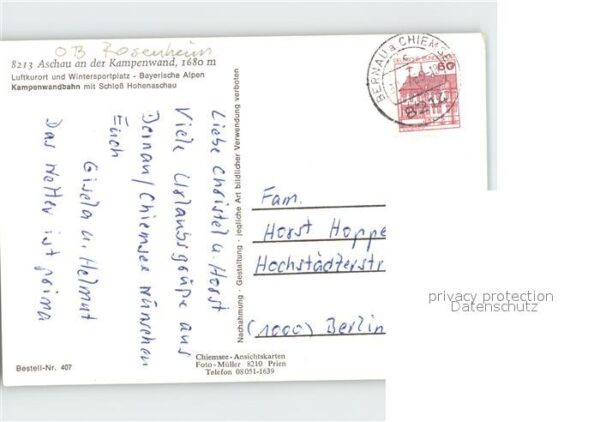 OB Rosenheim
8213 Aschau an der Kampenwand, 1680 m
Luftkurort und Wintersportplatz - Bayerische Alpen
Kampenwandbahn mit Schloß Hohenaschau
Liebe Christel u. Horst
Viele Urlaubsgrüße aus
Bernau/Chiemsee wünschen
Euch
Gisela u. Helmut
Das Wetter ist prima
Nachahmung - Gestaltung - jegliche Art bildlicher Verwendung verboten
BERNAU a CHIEMSEE
8214
60
Fam.
Horst Hoppe
Hochstädterstr
(1000) Berlin
privacy protection
Datenschutz
Chiemsee-Ansichtskarten
Foto-Müller 8210 Prien
Telefon 08051-1639
Bestell-Nr. 407